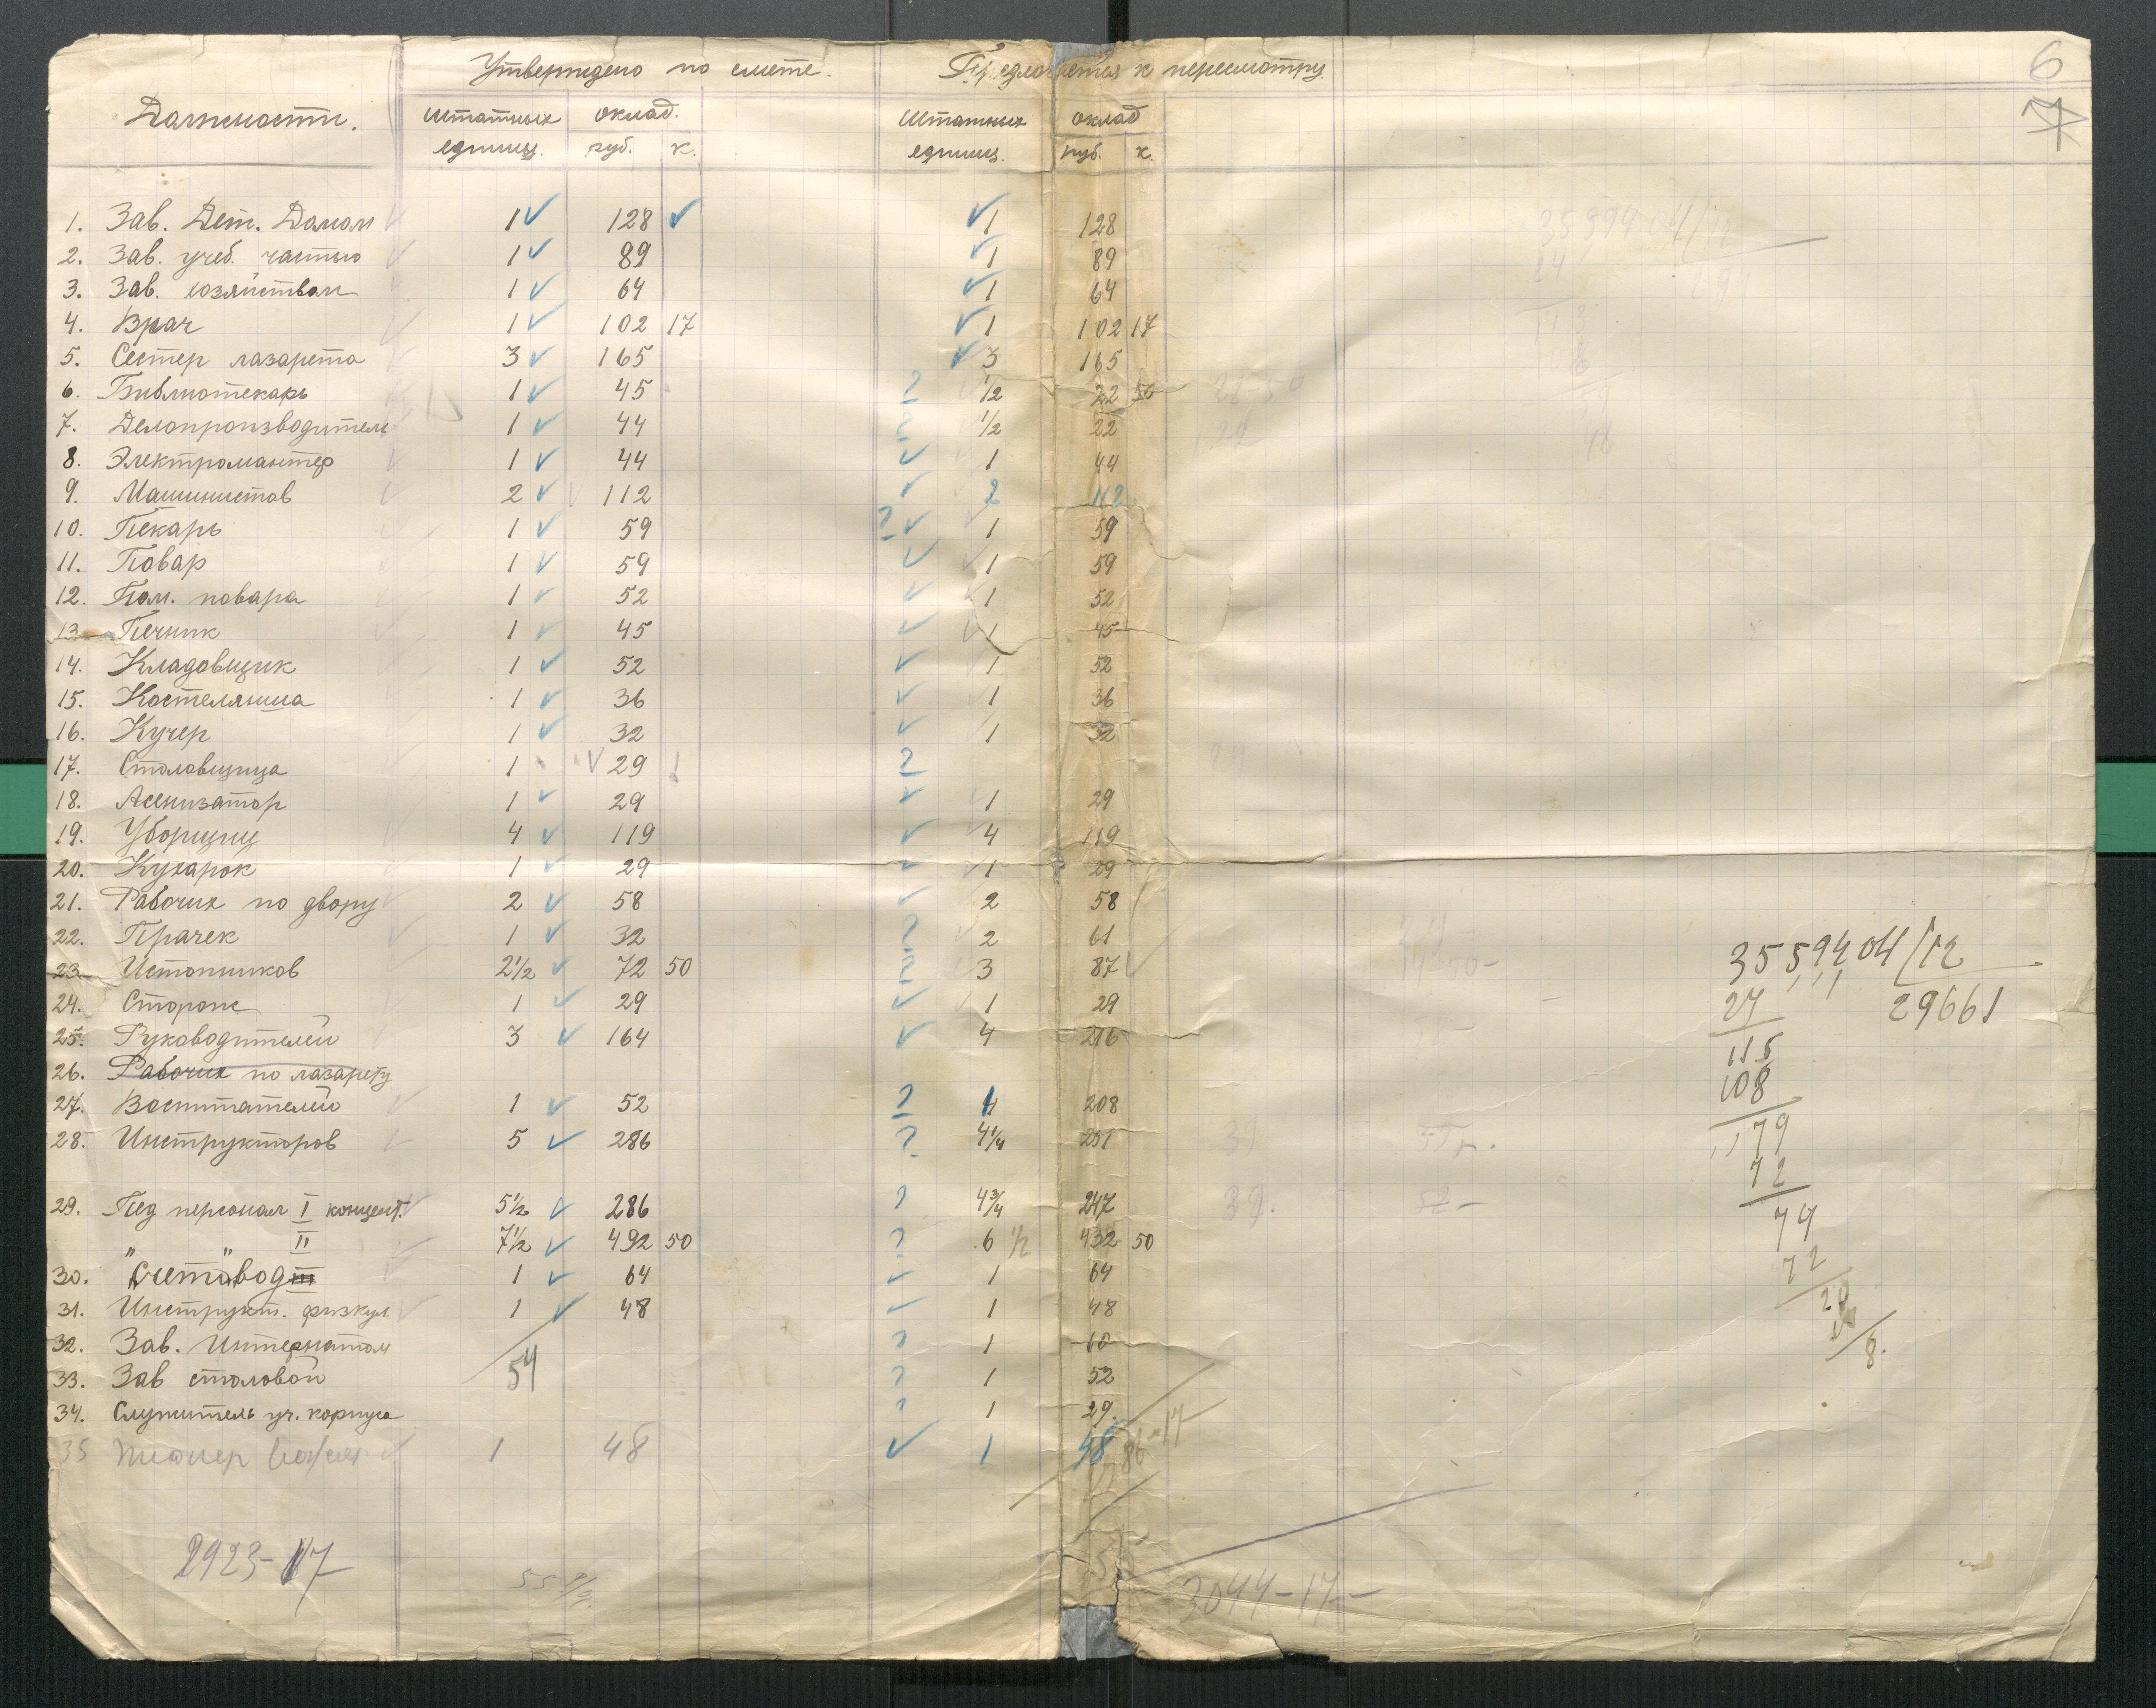 6
7
Утверждено по смете. Предлогается к пересмотру
Должности. Штатных оклад. Штатных оклад
единиц. руб. к. единиц. руб. к.
1. Зав. Дет. Домом 1 128 1 128
2. Зав. учеб. частью 1 89 1 89
3. Зав. хозяйством 1 64 1 64
4. Врач 1 102 17 1 102 17
5. Сестер лазарета 3 165 3 165
6. Библиотекарь 1 45 ? 1/2 22 50 22-50
7. Делопроизводитель 1 44 ? 1/2 22 22
8. Электромантер 1 44 1 44
9. Машинистов 2 112 2 112
10. Пекарь 1 59 ? 1 59
11. Повар 1 59 1 59
12. Пом. повара 1 52 1 52
13. Печник 1 45 1 45
14. Кладовщик 1 52 1 52
15. Костелянша 1 36 1 36
16. Кучер 1 32 1 32
17. Столовщица 1 29 ! ?
18. Асенизатор 1 29 1 29
19. Уборщиц 4 119 4 119
20. Кухарок 1 29 1 29
21. Рабочих по двору 2 58 2 58
22. Прачек 1 32 ? 2 61
23. Истопников 2 1/2 72 50 ? 3 87 14-50-
24. Сторож 1 29 1 29
25. Руководителей 3 164 4 216
26. Рабочих по лазарету
27. Воспитателей 1 52 ? 4 208
28. Инструкторов 5 286 ? 4 1/4 251
29. Пед персонал I концент. 5 1/2 286 ? 4 3/4 247 39.
" " II 7 1/2 492 50 ? 6 1/2 432 50
30. Счетовод 1 64 1 64
31. Инструкт. физкул. 1 48 1 48
32. Зав. Интернатом ? 1 60
33. Зав столовой 54 ? 1 52
34. Служитель уч. корпуса ? 1 29.
35 Пионер 1 48 1 48
86-17
2923-17
3044-17-
3559404/12
27 29661
115
108
79
72
74
72
20
8.